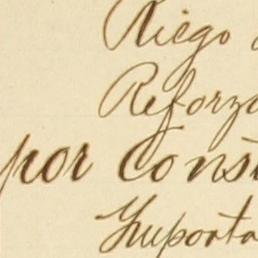 Riego
Reforza
por const
Importa